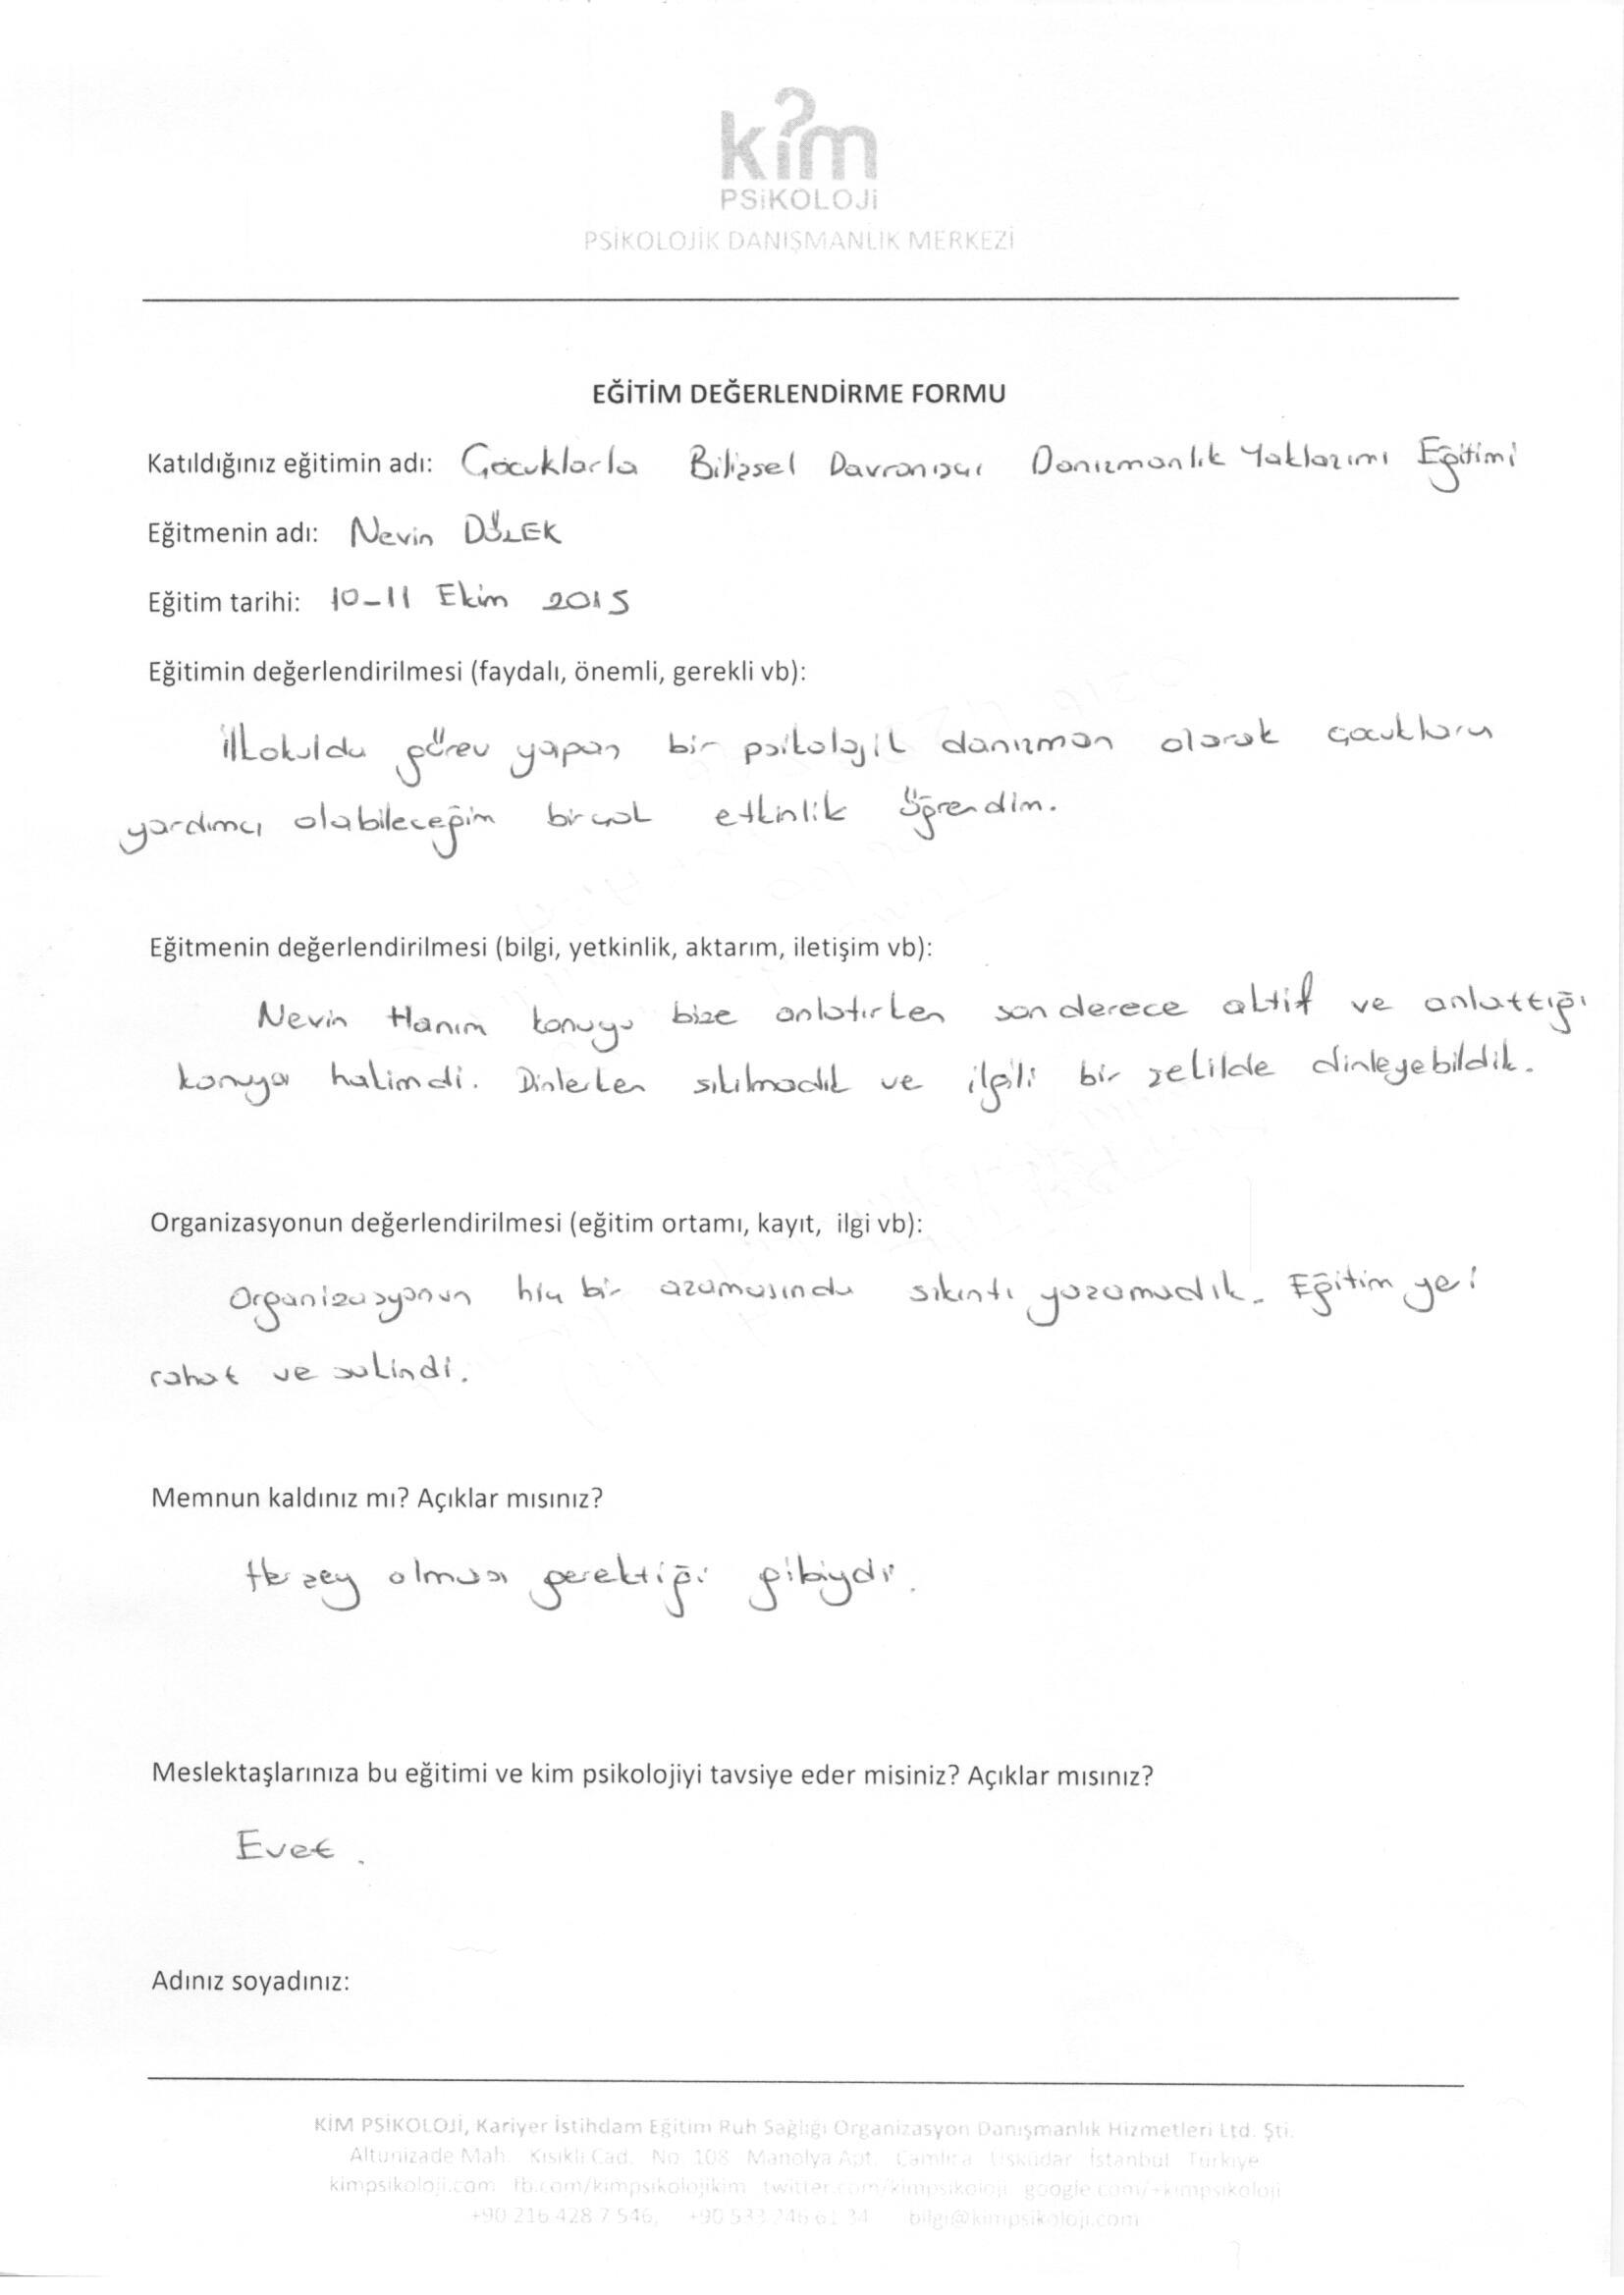 kim
PSiKOLOJi
PSİKOLOJİK DANIŞMANLIK MERKEZİ
EĞİTİM DEĞERLENDİRME FORMU
Katıldığınız eğitimin adı: Çocuklarla Bilişsel Davranışçı Danışmanlık Yaklaşımı Eğitimi
Eğitmenin adı: Nevin DÖLEK
Eğitim tarihi: 10-11 Ekim 2015
Eğitimin değerlendirilmesi (faydalı, önemli, gerekli vb):
İlkokulda görev yapan bir psikolojik danışman olarak çocuklara
yardımcı olabileceğim birçok etkinlik öğrendim.
Eğitmenin değerlendirilmesi (bilgi, yetkinlik, aktarım, iletişim vb):
Nevin Hanım konuyu bize anlatırken son derece aktif ve anlattığı
konuya hakimdi. Dinlerken sıkılmadık ve ilgili bir şekilde dinleyebildik.
Organizasyonun değerlendirilmesi (eğitim ortamı, kayıt, ilgi vb):
Organizasyonun hiç bir aşamasında sıkıntı yaşamadık. Eğitim yeri
rahat ve sakindi.
Memnun kaldınız mı? Açıklar mısınız?
Herşey olması gerektiği gibiydi.
Meslektaşlarınıza bu eğitimi ve kim psikolojiyi tavsiye eder misiniz? Açıklar mısınız?
Evet.
Adınız soyadınız:
KİM PSİKOLOJİ, Kariyer İstihdam Eğitim Ruh Sağlığı Organizasyon Danışmanlık Hizmetleri Ltd. Şti.
Altunizade Mah. Kısıklı Cad. No 108 Manolya Apt. Çamlıca Üsküdar İstanbul Türkiye
kimpsikoloji.com fb.com/kimpsikolojikim twitter.com/kimpsikoloji google.com/+kimpsikoloji
+90 216 428 7 546, +90 533 746 61 34 bilgi@kimpsikoloji.com